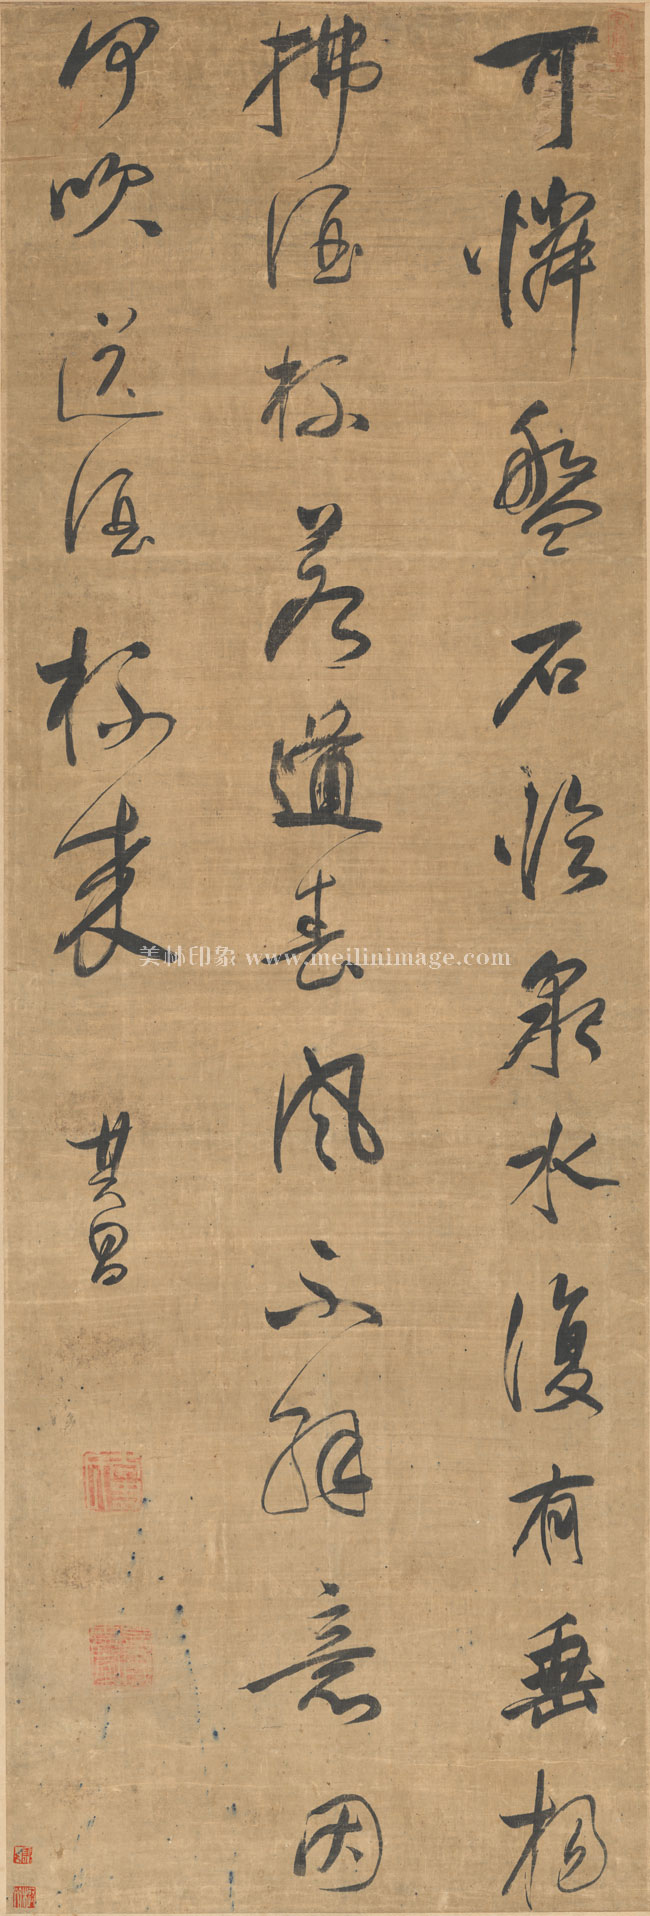 可憐盤石臨泉水復有垂楊
拂酒杯若道春風不解意因
何吹送酒杯來
其昌
美林印象 www.meilinimage.com